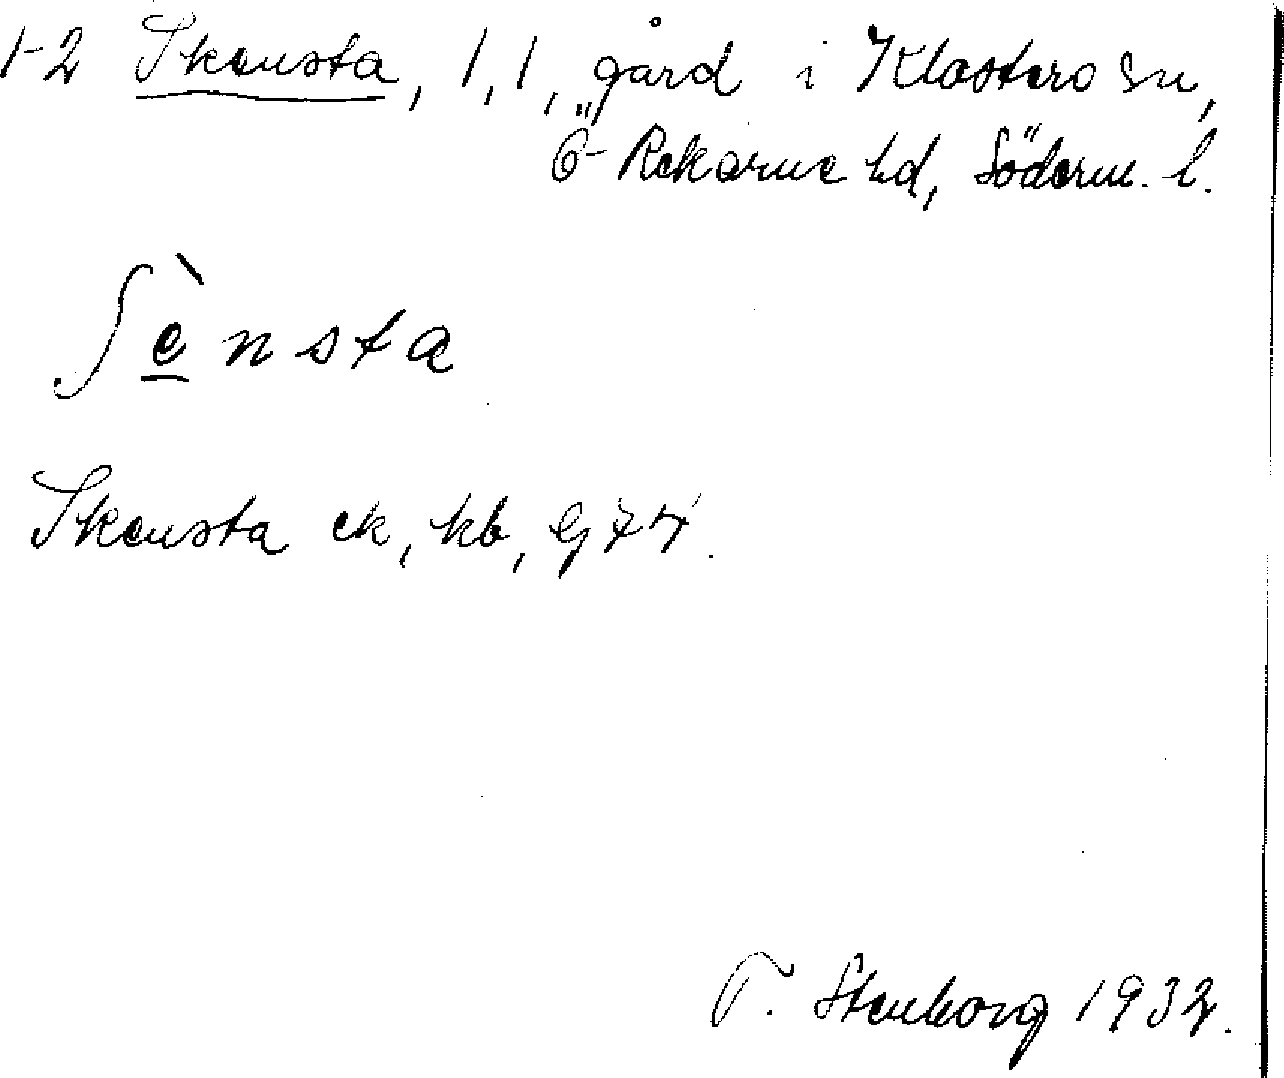 1-2 Skensta, 1, 1, gård i Klosters sn,
Ö-Rekarne hd, Söderm. l.
ʃènsta
Skensta ek, kb, Gj 74.
T. Stenborg 1932.